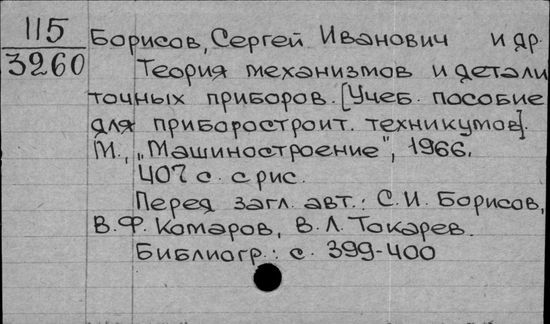 115
3260
Борисов, Сергей Иванович и др.
Теория механизмов и детали
точных приборов. [Учеб. пособие
для приборостроит. техникумов].
М., „Машиностроение", 1966.
407 с. с рис.
Перед загл. авт.: С.И. Борисов,
В.Ф. Комаров, В.Л. Токарев.
Библиогр.: с. 399-400